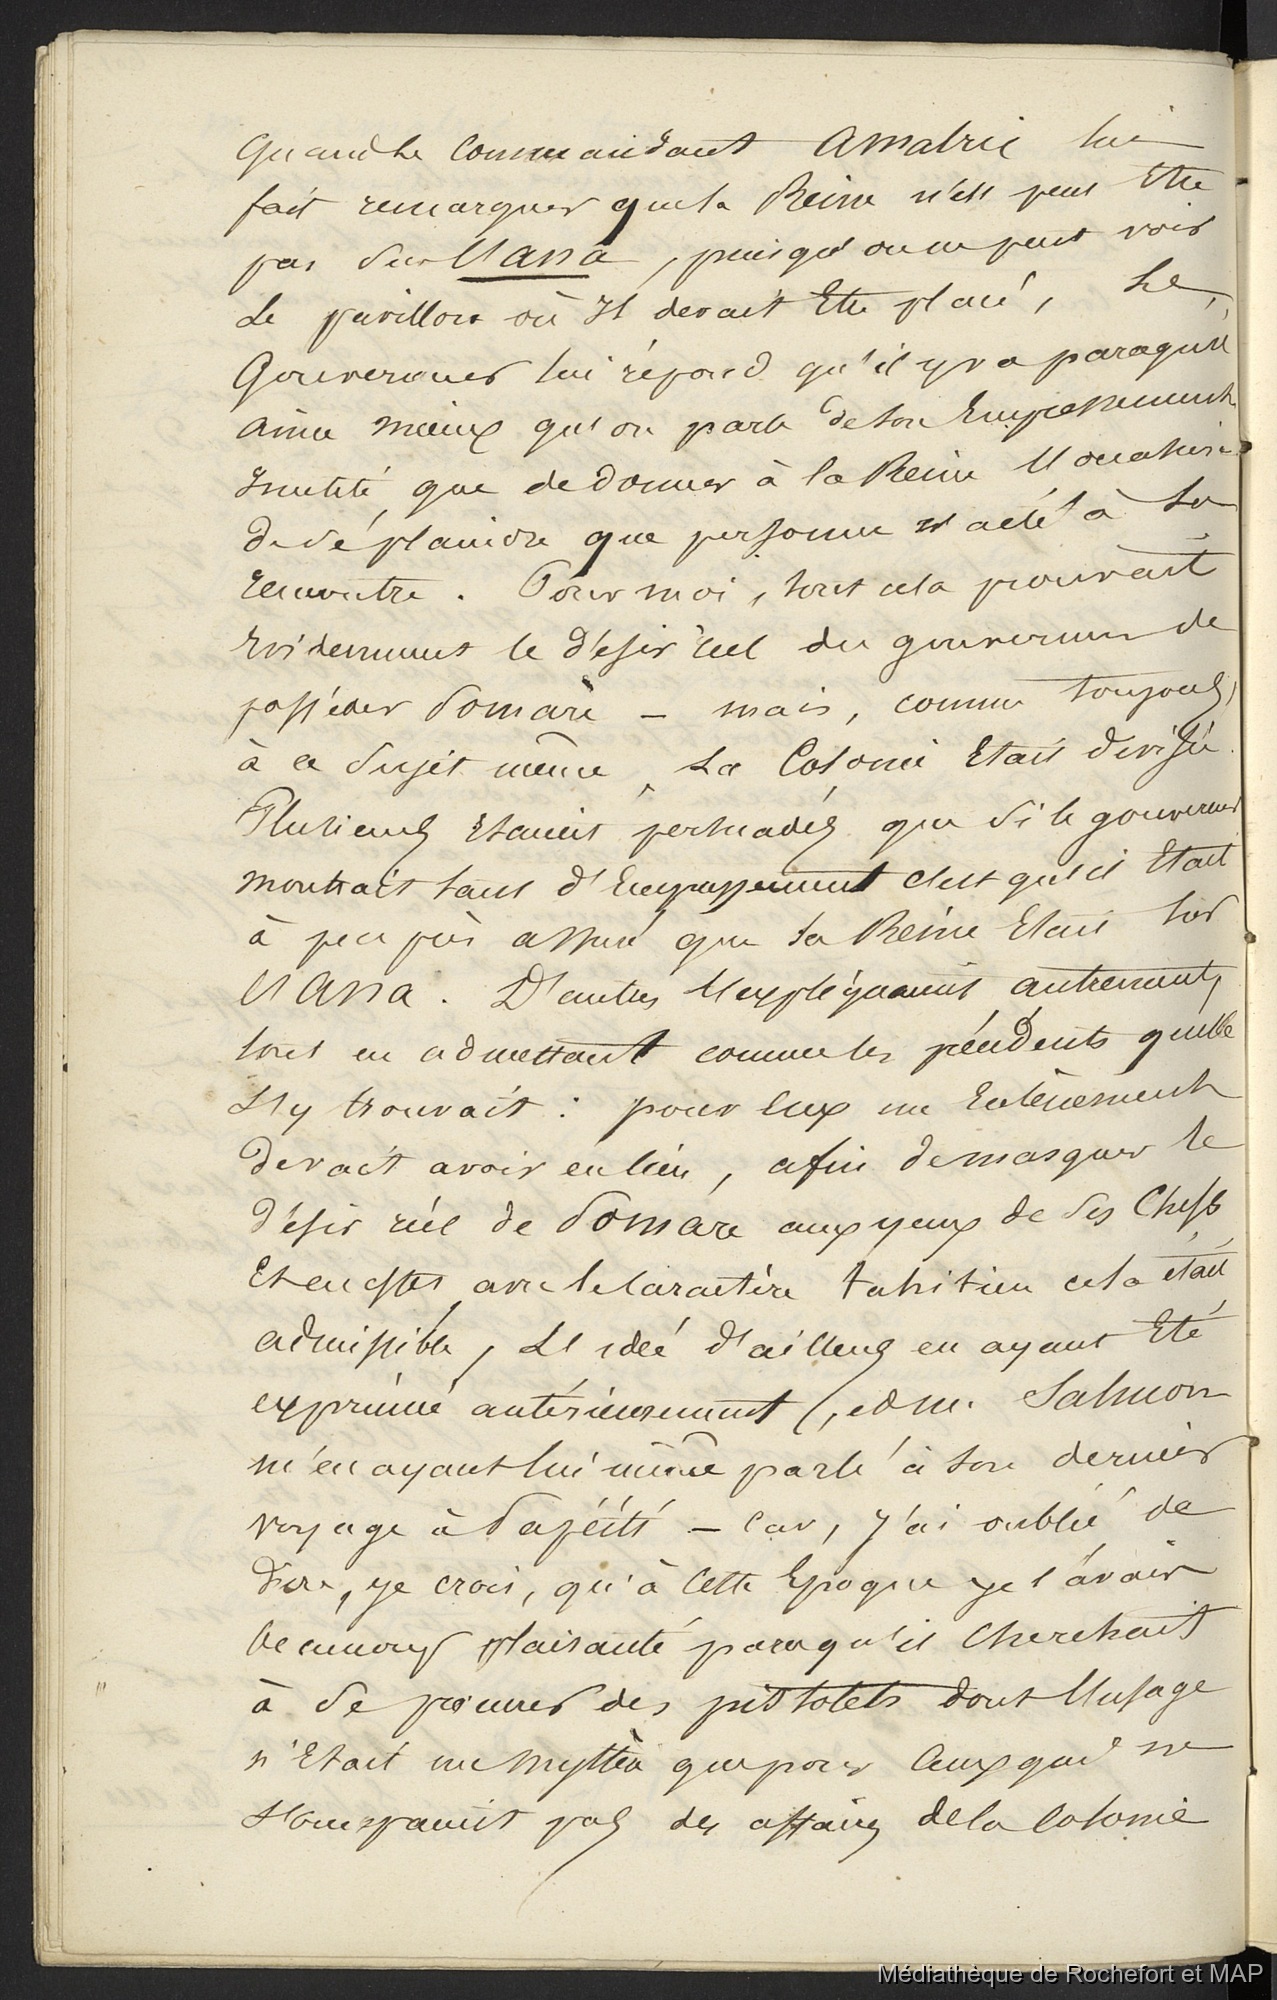 Quand le Commandant Amalric lui
fait remarquer que la Reine n'est peut Etre
pas sur l'Anna, puisqu'on ne peut voir
Le pavillon où Il devait Etre placé, Le
Gouverneur lui répond qu'il y va parcequ'il
aime mieux qu'on parle de son Empressement
Inutile, que de donner à la Reine l'occasion
de se plaindre que personne n'a été à sa
rencontre. Pour moi, tout cela prouvait
Evidemment le désir réel du gouverneur de
posséder Pomaré – mais, comme toujours,
à ce sujet même, La Colonie Etait divisée.
Plusieurs Etaient persuadés que si le gouverneur
montrait tant d'Empressement c'est qu'il Etait
à peu près assuré que la Reine Etait sur
l'Anna. D'autres l'expliquaient autrement,
tout en admettant comme les précédents qu'elle
s'y trouvait : pour Eux un Enlèvement
devait avoir eu lieu, afin de masquer le
désir réel de Pomaré aux yeux de ses Chefs
Et en effet, avec le Caractère tahitien cela était
admissible, L'idée d'ailleurs en ayant Eté
exprimé antérieurement (, et Mr. Salmon
m'en ayant lui même parlé à son dernier
voyage à Papéété – Car, j'ai oublié de
dire, je crois, qu'à Cette Epoque je l'avais
beaucoup plaisanté parcequ'il Cherchait
à se procurer des pistolets dont l'usage
n'Etait un Mystère que pour Ceux qui ne
s'occupaient pas des affaires de la Colonie
Médiathèque de Rochefort et MAP